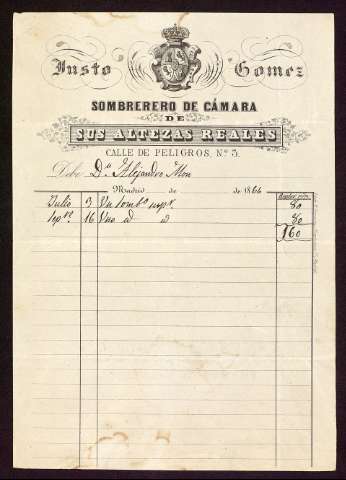 Justo Gomez
SOMBRERERO DE CÁMARA
DE
SUS ALTEZAS REALES
CALLE DE PELIGROS, N.º 3.
Debe D.n Alejandro Mon
Madrid de de 1864
Julio 3 Un somb.o 80
Sep.re 16 Uno id id 80
160